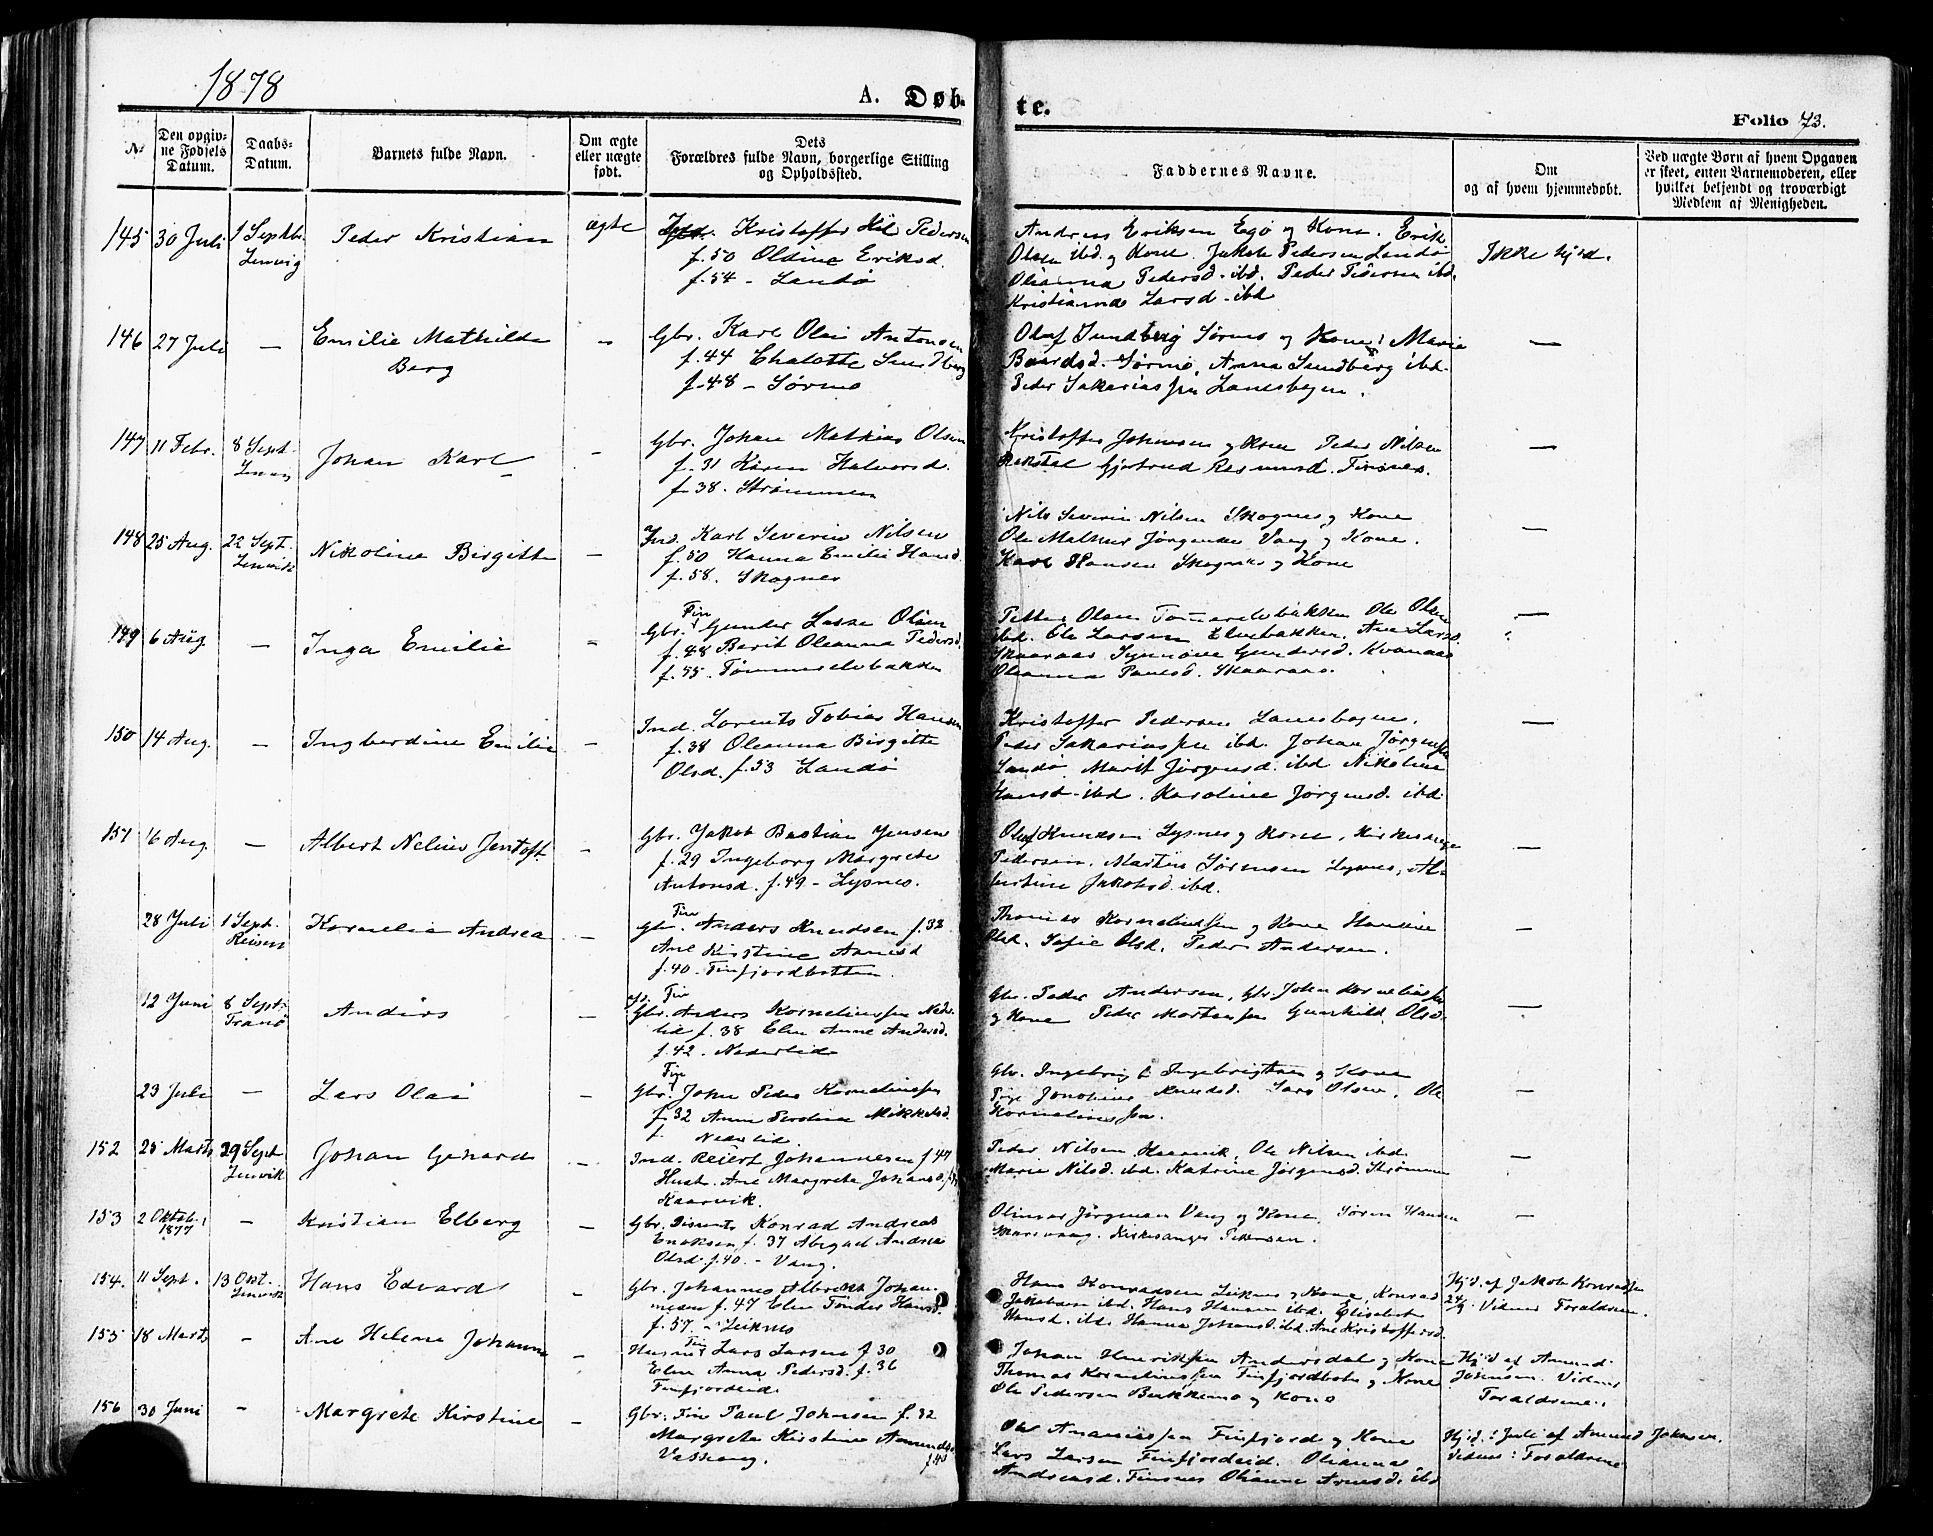 1878
A. Døb-
te.
Folio 73.
No
Den opgiv-
ne Fødsels
Datum.
Daabs-
Datum.
Barnets fulde Navn.
Om ægte
eller uægte
født.
Dets
Forældres fulde Navn, borgerlige Stilling
og Opholdssted.
Faddernes Navne.
Om
og af hvem hjemmedøbt.
Ved uægte Børn af hvem Opgaven
er skeet, enten Barnemoderen, eller
hvilket beljendt og troværdigt
Medlem af Menigheden.
145 30 Juli 1 Septbr. Peder Kristian ægte Kristoffer Hil Pedersen
Lenvig
f. 50 Oldine Eriksd.
f. 54 - Landø
Andreas Eriksen Egø og Kone. Erik
Olsen ibd. og Kone. Jakob Pedersen Landø
Olianna Pedersd. ibd. Peder Pedersen ibd.
Kristianna Larsd. ibd
Ikke hjd.
146 27 Juli — Emilie Mathilde
Berg
Gbr. Karl Olai Antonsen
f. 44 Chalotte Sundberg
f. 48 - Sørmo
Olaf Sundberg Sørmo og Kone, Marie
Baardsd. Sørmo, Anna Sundberg ibd.
Peder Sakariassen Lanesbogen.
—
147 11 Febr. 8 Sept. Johan Karl -
Gbr. Johan Mathias Olsen
f. 31 Karen Halvorsd.
f. 38. Strømmen
Kristoffer Johnsen og Kone Peder Nilsen
Gjertrud Finsnes.
—
148 25 Aug. 22 Sept. Nikoline Birgitte —
Lenvik
Ind. Karl Severin Nilsen
f. 50 Hanna Emilie Hansd.
f. 58. Skognes
Nils Severin Nilsen Skognes og Kone
Ole Jørgensen Vang og Kone.
Karl Hansen Skognes og Kone
—
149 6 Aug. — Inga Emilie -
Fin
Gbr. Gunder Lasse Olsen
f. 48 Berit Oleanna Pedersd.
f. 55. Tømmerelvbakken
Petter Olsen Tømmerelvbakken Ole Olsen
ibd. Ole Larsen Elvebakken. Ane Larsd.
Skaaraas Synnøve Gundersd. Kvanaas
Olianna Paulsd. Skaaraas.
—
150 14 Aug. — Ingberdine Emilie —
Ind. Lorents Tobias Hansen
f. 38 Oleanna Birgitte
Olsd. f. 53 Landø
Kristoffer Pedersen Lanesbogen.
Peder Sakariassen ibd. Johan Jørgensen
Landø. Marit Jørgensd. ibd Nikoline
Hansd. ibd. Karoline Jørgensd. ibd.
—
151 16 Aug. — Albert Nelius Jentoft —
Gbr. Jakob Bastian Jensen
f. 29 Ingeborg Margrete
Antonsd. f. 49 - Lysnes.
Olaf Knudsen Lysnes og Kone, Kirkesanger
Pedersen, Martin Sørensen Lysnes, Al-
bertine Jakobsd. ibd.
—
28 Juli 1 Sept. Kornelia Andrea —
Reisen
Fin
Gbr. Anders Knudsen f. 32
Ane Kirstine Arnesd
f. 40. Finfjordbotten.
Thomas Korneliussen og Kone Hansine
Olsd. Sofie Olsd. Peder Andersen.
—
12 Juni 8 Sept. Anders —
Tranø
Fin
Gbr. Anders Korneliussen Neder-
lid f. 38 Elen Anne Andersd.
f. 42. Nederlid
Gbr. Peder Andersen, Gbr. John Korneliussen
og Kone Peder Mortensen Gunhild Olsd.
—
23 Juli — Lars Olai —
Fin
Gbr. John Peder Korneliussen
f. 32 Anne Berdine Mikkelsd.
f. Nederlid
Gbr. Ingebrigt Ingebrigtsen og Kone
Pige Knudsd. Lars Olsen, Ole
Korneliussen.
—
152 25 Marts 29 Sept Johan Gerhard —
Lenvik
Ind. Reiert Johannesen f. 47
Hust. Ane Margrete Johansd.
Kaarvik.
Peder Nilsen Kaarvik, Ole Nilsen ibd.
Marie Nilsd. ibd. Katrine Jørgensd. Strømmen
—
153 2 Oktob. — Kristian Elberg —
1877
Gbr. Dissents Konrad Andreas
Enoksen f. 37 Abigael Andrea
Olsd. f. 40. - Vang.
Olinus Jørgensen Vang og Kone, Søren Hansen
Kirkesanger Pedersen.
—
154. 11 Sept. 13 Okt. Hans Edvard -
Lenvik
Gbr. Johannes Albrikt Johan-
nesen f. 47 Elen Hansd.
f. 57 - Leiknes
Hans Konradsen Leiknes og Kone, Konrad
Jakobsen ibd. Hans Hansen ibd. Elisabeth
Hansd. ibd. Hanna Johansd. ibd. Ane Kristoffersd.
Hjd. af Jakob Konradsen
24/9. Vidner Foraldrene.
155 18 Marts - Ane Helene Johanna —
Husmd Fin Lars Larsen f 30
Elen Anna Pedersd. f. 36
Finfjordeid
Johan Henriksen Andersdal og Kone
Thomas Korneliussen Finfjordbotn og Kone
Ole Pedersen Bukkemo og Kone
Hjd af Amund
Johnsen. Vidner
Foraldrene.
156 30 Juni - Margrete Kirstine —
Gbr. Fin Paul Johnsen f. 32
Margrete Kirstine Amundsd.
Vassvang.
Ole Ananiassen Finfjord og Kone
Lars Larsen Finfjordeid. Olianna
Andreasd. Finsnes Olianna Arnesd. ibd
Hjd. i Juli af Amund Johnsen.
Vidner: Foraldrene